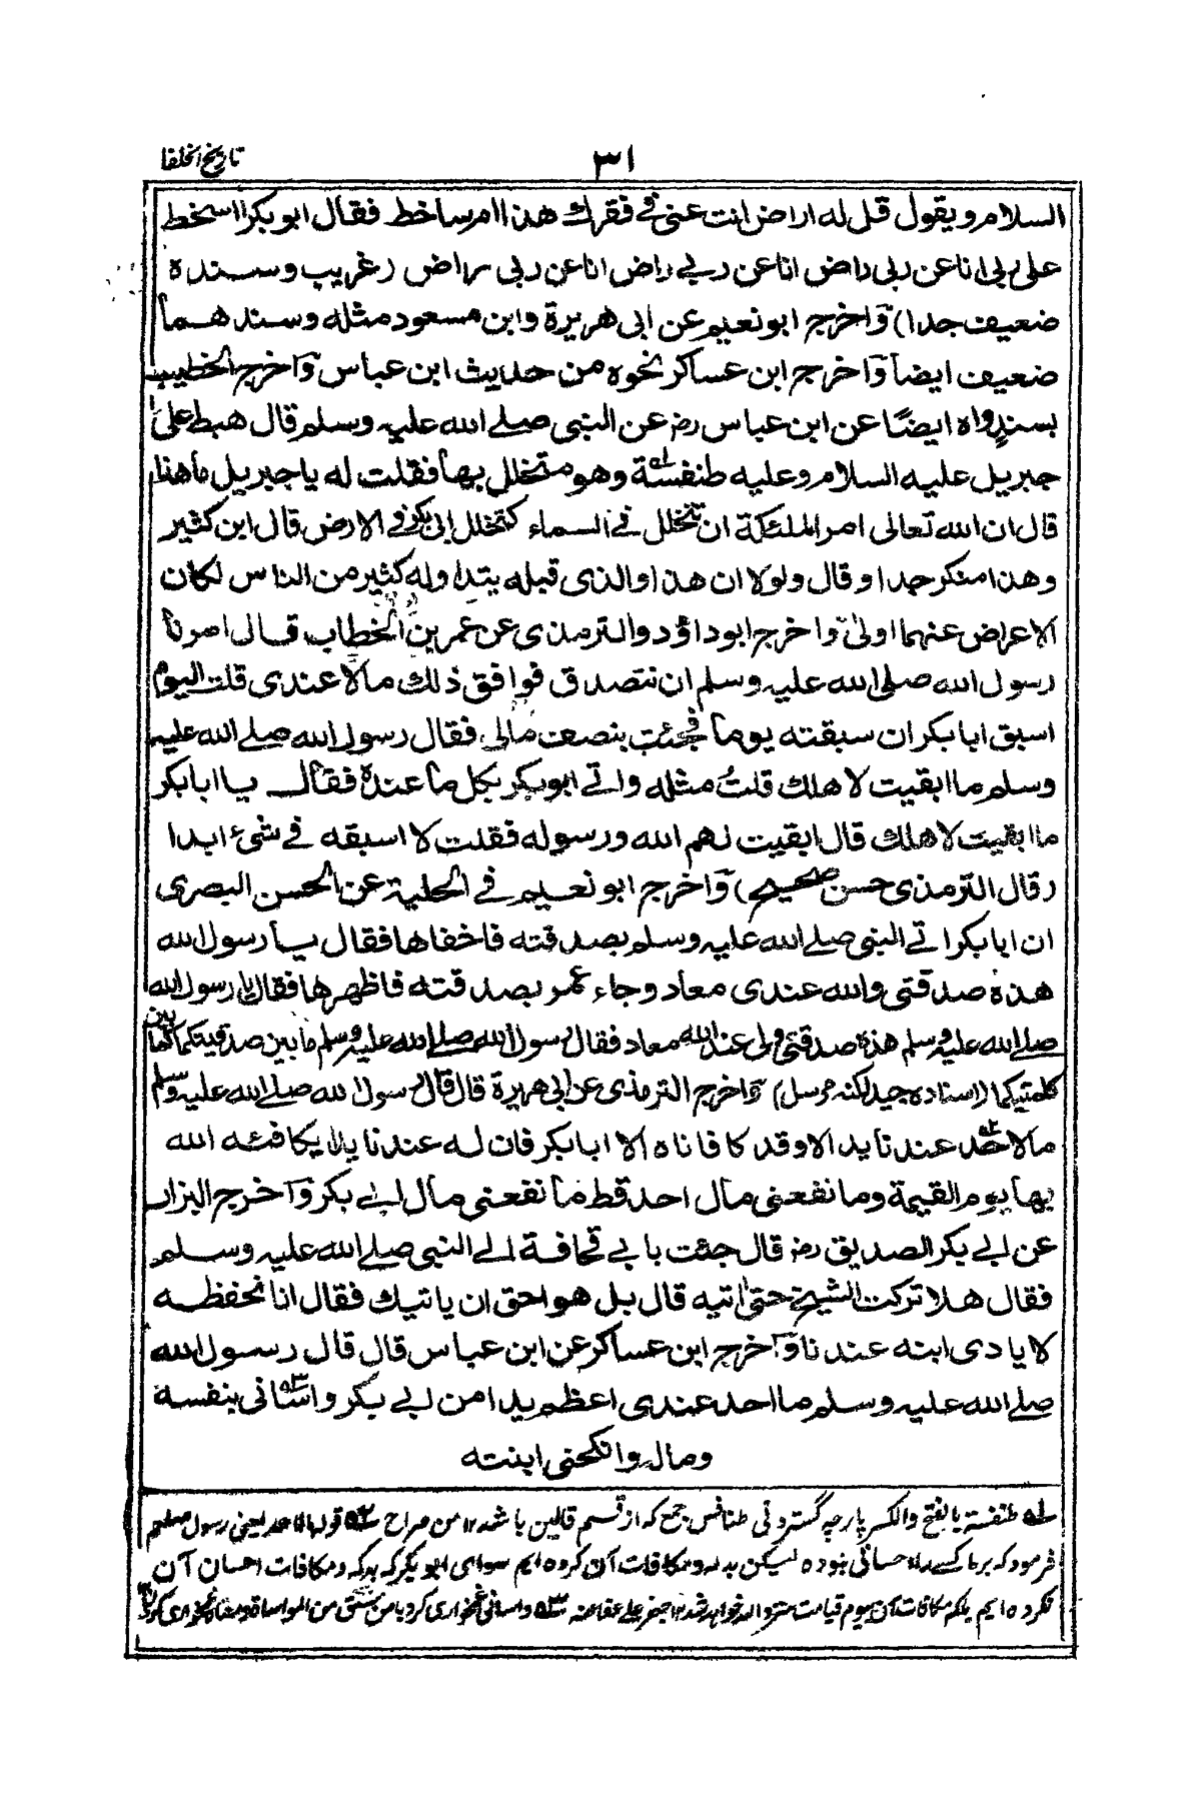 تاريخ الخلفا
٣١
السلام ويقول قل له اراض انت عنى فى فقرك هذا ام ساخط فقال ابو بكر ااسخط
على ربى انا عن ربى راض انا عن ربى راض انا عن ربى راض (غريب وسنده
ضعيف جدا) وآخرج ابو نعيم عن ابى هريرة وابن مسعود مثله وسندهما
ضعيف ايضا وآخرج ابن عساكر نحوه من حديث ابن عباس وآخرج الخطيب
بسند واه ايضًا عن ابن عباس رضـ عن النبى صلے الله عليه وسلم قال هبط على
جبريل عليه السلام وعليه طنفسة وهو متخلل بها فقلت له يا جبريل ما هذا
قال ان الله تعالى امر الملئكة ان تتخلل فے السماء كتخلل ابى بكر فى الارض قال ابن كثير
وهذا منكر جدا وقال ولولا ان هذا والذى قبله يتداوله كثير من الناس لكان
الاعراض عنهما اولى وآخرج ابو داؤد والترمذى عن عمر بن الخطاب قال امرنا
رسول الله صلى الله عليه وسلم ان نتصدق فوافق ذلك مالا عندى قلت اليوم
اسبق ابا بكر ان سبقته يوما فجئت بنصف مالى فقال رسول الله صلے الله عليه
وسلم ما ابقيت لاهلك قلتُ مثله واتے ابو بكر بكل ما عنده فقال يا ابا بكر
ما ابقيت لاهلك قال ابقيت لهم الله ورسوله فقلت لا اسبقه فے شىء ابدا
(قال الترمذى حسن صحيح) وآخرج ابو نعيم فے الحلية عن الحسن البصرى
ان ابا بكر اتے النبى صلے الله عليه وسلم بصدقته فاخفاها فقال يا رسول الله
هذه صدقتى والله عندى معاد وجاء عمر بصدقته فاظهرها فقال يا رسول الله
صلے الله عليه وسلم هذه صدقتى ولى عند الله معاد فقال رسول الله صلے الله عليه وسلم ما بين صدقتيكما كما بين
كلمتيكما (اسناده جيد لكنه مرسل) وآخرج الترمذى عن ابى هريرة قال قال رسول الله صلے الله عليه وسلم
ما لاحد عندنا يد الا وقد كافاناه الا ابا بكر فان له عندنا يدا يكافئه الله
بها يوم القيمة وما نفعنى مال احد قط ما نفعنى مال ابے بكر وآخرج البزار
عن ابے بكر الصديق رضـ قال جئت بابے قحافة الے النبى صلے الله عليه وسلم
فقال هلا تركت الشيخ حتى اتيه قال بل هو احق ان ياتيك فقال انا نحفظه
لايادى ابنه عندنا وآخرج ابن عساكر عن ابن عباس قال قال رسول الله
صلے الله عليه وسلم ما احد عندى اعظم يدا من ابے بكر واسانى بنفسه
وماله وانكحنى ابنته
لـه طنفسة بالفتح والكسر پارچه گستردنى طنافس جمع كه از قسم قالين باشد ١٢ من صراح ٢ـه قوله ما لاحد يعنى رسول صلعم
فرمود كه بر ما كسے را احسانى نبوده ليكن بدله ومكافات آن كرده ايم سواى ابو بكر كه بدله ومكافات احسان آن
نكرده ايم بلكه مكافات آن يوم قيامت خواهد شد ١٢ ٣ـه واسانى غمخوارى كرد با من مشتق من المواساة